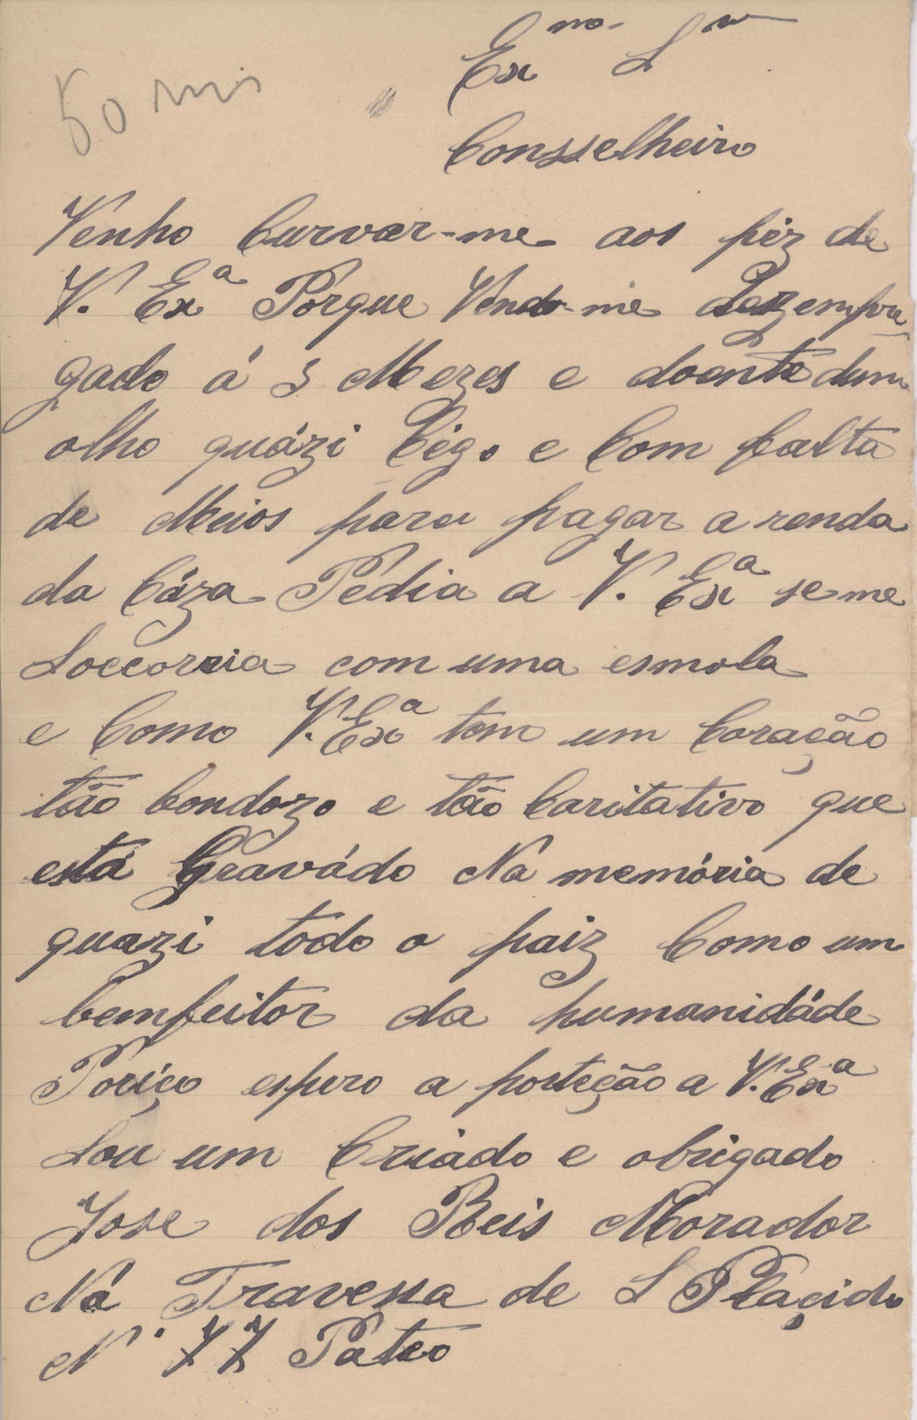 50 reis
Exmo Sr
Consselheiro
Venho Curvar-me aos péz de
V. Exª Pórque Vendo-me Dezempre
gado á 3 Mezes e doente dum
olho quázi Cégo e Com falta
de Meios para pagar a renda
da Cáza Pedia a V. Exª se me
Soccorria com uma esmola
e Como V. Exª tem um Coração
tão bondozo e tão Caritativo que
está Gravádo Ná memória de
quazi todo o paiz Como um
bemfeitor da humanidáde
Poriço espero a porteção a V. Exª
Sou um Criado e obrigado
Jose dos Reis Morador
Ná Travessa de S Plaçido
Nº 77 Páteo